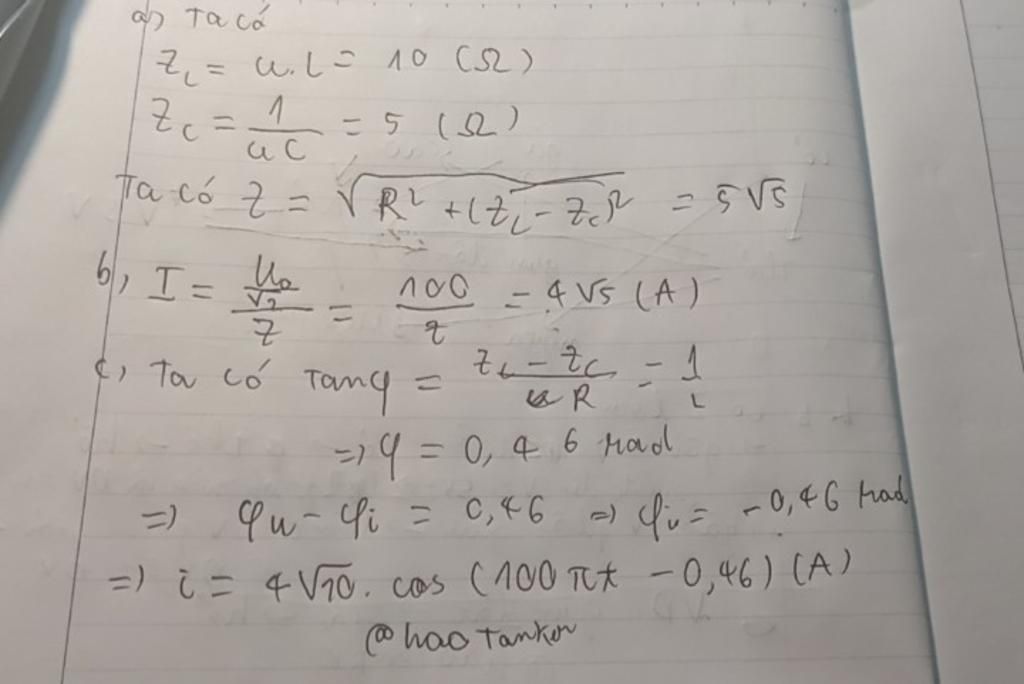 a, Ta có
Z_L = ω.L = 10 (Ω)
Z_C = 1/(ωC) = 5 (Ω)
Ta có Z = √(R² + (Z_L - Z_C)²) = 5√5
b, I = (U₀/√2)/Z = 100/Z = 4√5 (A)
c, Ta có Tanφ = (Z_L - Z_C)/R = 1/
=> φ = 0,46 rad
=> φu - φi = 0,46 => φi = -0,46 rad
=> i = 4√10. cos (100πt - 0,46) (A)
@haoTanker